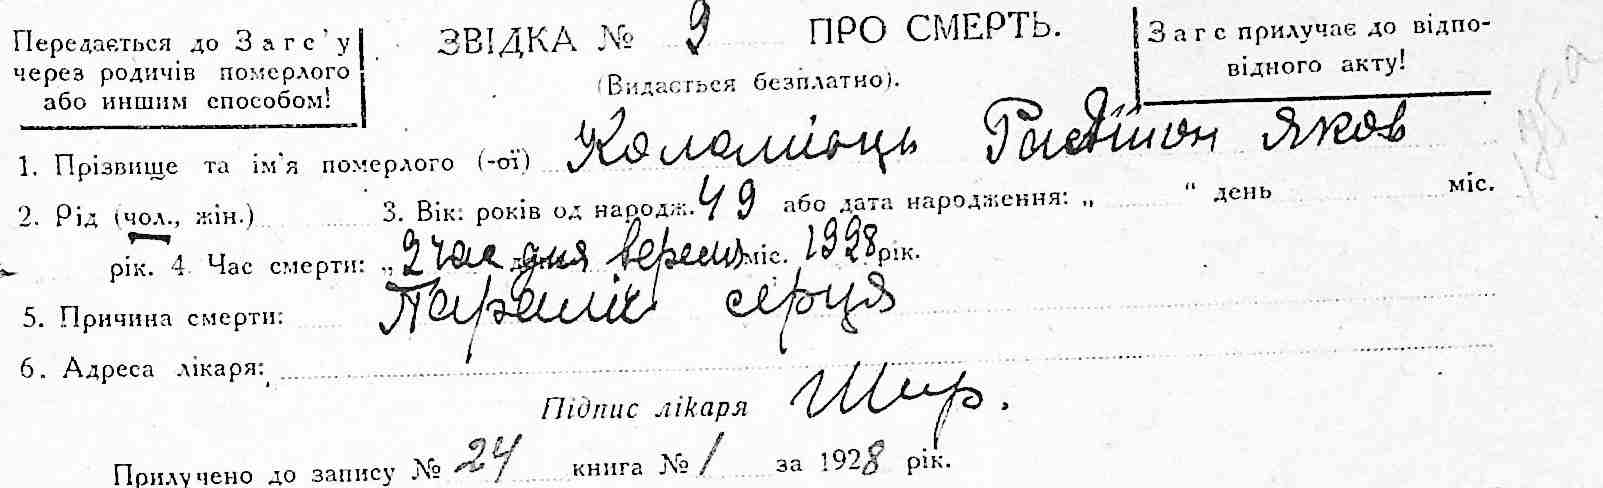 Передається до Загс'у
через родичів померлого
або иншим способом!
ЗВІДКА № 9 ПРО СМЕРТЬ.
(Видається безплатно).
Загс прилучає до відпо-
відного акту!
1. Прізвище та ім'я померлого (-ої) Коломієць Яков
2. Рід (чол., жін.) 3. Вік: років од народж. 49 або дата народження: „ " день міс.
рік. 4. Час смерти: „ 2 час дня вересня міс. 1928 рік.
5. Причина смерти: Параліч серця
6. Адреса лікаря:
Підпис лікаря
Прилучено до запису № 24 книга № 1 за 1928 рік.